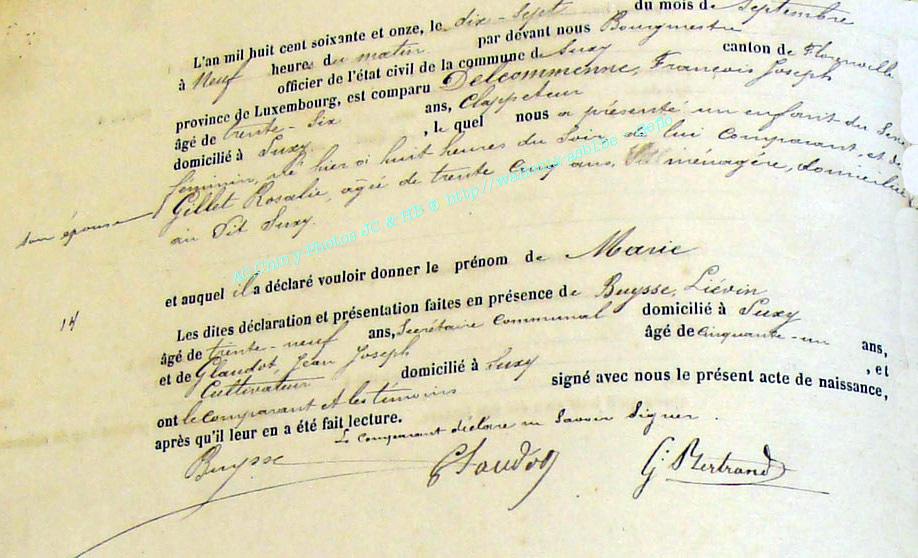 L'an mil huit cent soixante et onze, le dix-sept du mois de Septembre
à Neuf heures du matin par devant nous Bourgmestre
officier de l'état civil de la commune de Suxy canton de Florenville
province de Luxembourg, est comparu Delcommenne, François Joseph
âgé de trente-Six ans, Clappeteur
domicilié à Suxy, le quel nous a présenté un enfant du Sexe
féminin, né hier à huit heures du Soir, de lui comparant, et de
son épouse Gillet Rosalie, âgée de trente cinq ans, ménagère, domiciliée
au dit Suxy.
et auquel il a déclaré vouloir donner le prénom de Marie
14
Les dites déclaration et présentation faites en présence de Buysse, Liévin
âgé de trente-neuf ans, Secrétaire Communal domicilié à Suxy
et de Glaudot, Jean Joseph âgé de cinquante-un ans,
Cultivateur domicilié à Suxy, et
ont le comparant et les témoins signé avec nous le présent acte de naissance,
après qu'il leur en a été fait lecture.
Le comparant déclare ne Savoir Signer.
Buysse Glaudot G. Bertrand